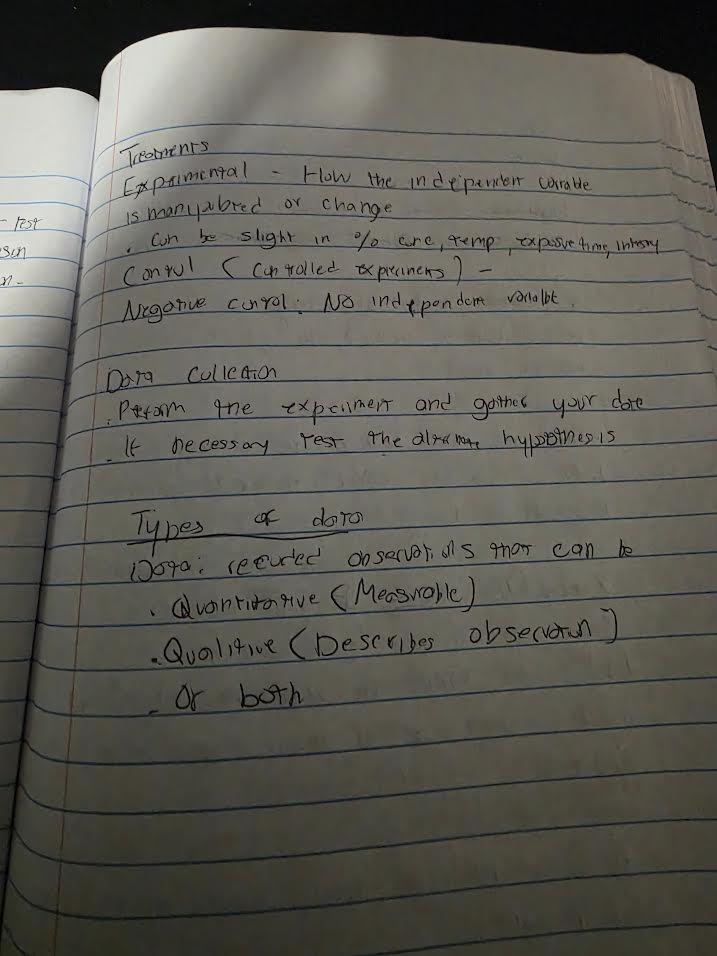 - test
Treatments
Experimental - How the independent variable
is manipulated or change
. Can be slight in % conc, temp, exposure time, intensity
Control (Controlled experiments) -
Negative control: No independent variable.
Data collection
. Perform the experiment and gather your data
. If necessary test the alternate hypothesis
Types of data
Data: recorded observations that can be
. Quantitative (Measurable)
. Qualitive (Describes observation)
- Or both